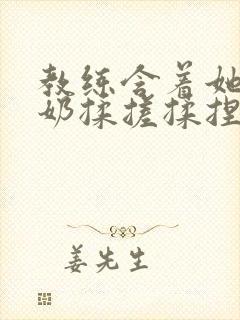 教练含着她
奶揉搓揉捏
姜先生